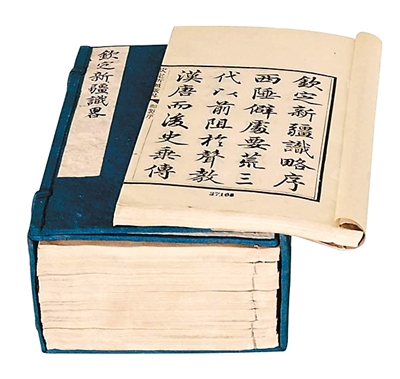 欽定新疆識畧
欽定新疆識略序
西陲僻處要荒三
代以前阻於聲教
漢唐而後史乘傳
27168